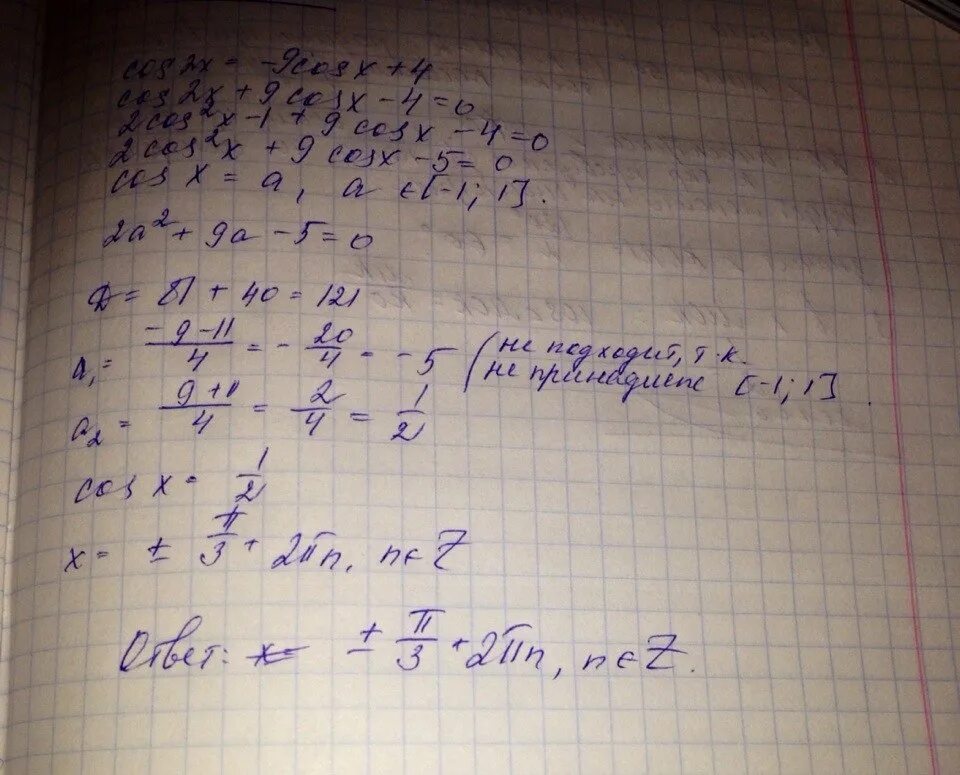 cos2x = -9cosx + 4
cos2x + 9cosx - 4 = 0
2cos²x - 1 + 9cosx - 4 = 0
2cos²x + 9cosx - 5 = 0
cos x = a, a ∈ [-1; 1].
2a² + 9a - 5 = 0
D = 81 + 40 = 121
a₁ = (-9-11)/4 = -20/4 = -5 (не подходит, т.к.
не принадлеж [-1; 1].
a₂ = (9+11)/4 = 2/4 = 1/2
cos x = 1/2
x = ± π/3 + 2πn, n∈Z
Ответ: x= ± π/3 + 2πn, n∈Z.